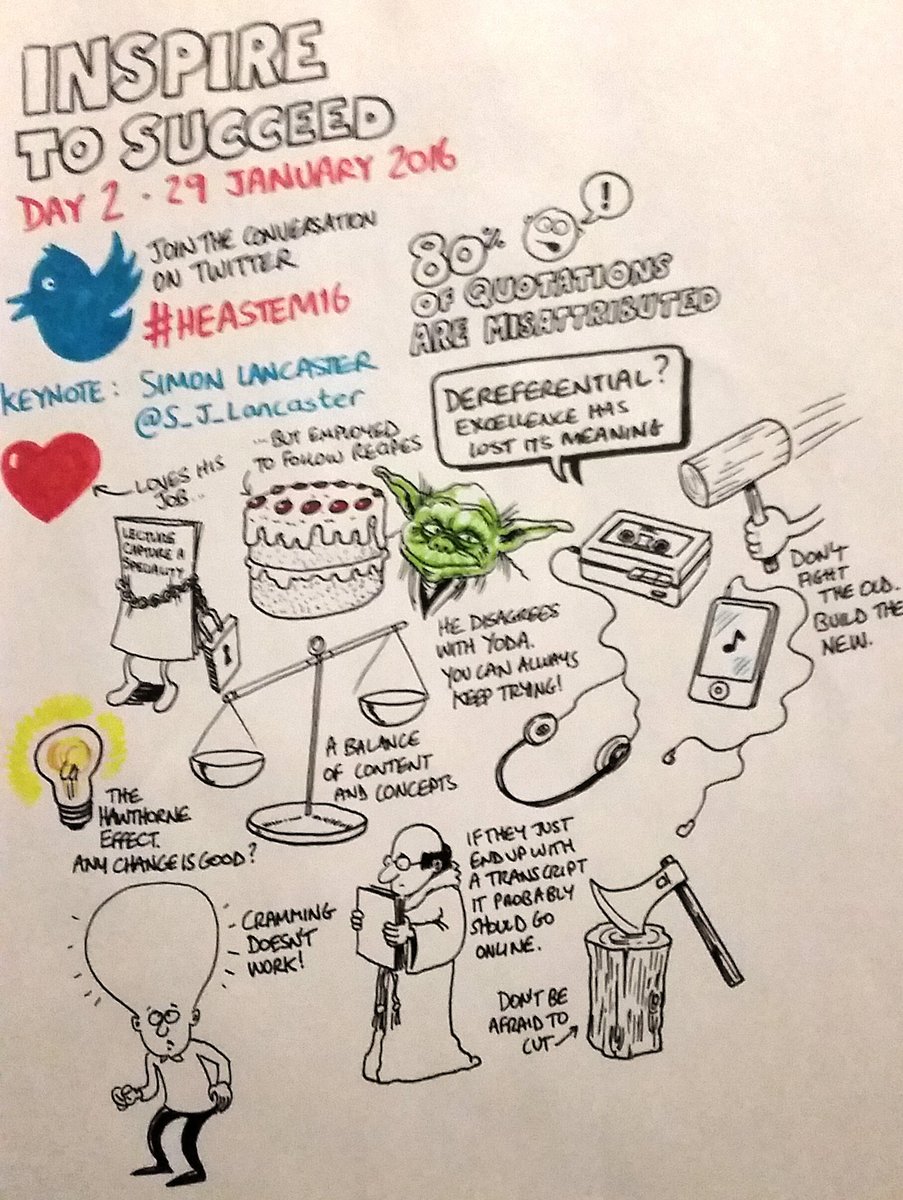 INSPIRE
TO SUCCEED
DAY 2 · 29 JANUARY 2016
JOIN THE CONVERSATION
ON TWITTER
#HEASTEM16
80%
!
OF QUOTATIONS
ARE MISATTRIBUTED
KEYNOTE: SIMON LANCASTER
@S_J_Lancaster
DEREFERENTIAL?
EXCELLENCE HAS
LOST ITS MEANING
LOVES HIS
JOB...
...BUT EMPLOYED
TO FOLLOW RECIPES
LECTURE
CAPTURE A
SPECIALITY
HE DISAGREES
WITH YODA.
YOU CAN ALWAYS
KEEP TRYING!
DON'T
FIGHT
THE OLD.
BUILD THE
NEW.
A BALANCE
OF CONTENT
AND CONCEPTS
THE
HAWTHORNE
EFFECT.
ANY CHANGE IS GOOD?
CRAMMING
DOESN'T
WORK!
IF THEY JUST
END UP WITH
A TRANSCRIPT
IT PROBABLY
SHOULD GO
ONLINE.
DON'T BE
AFRAID TO
CUT